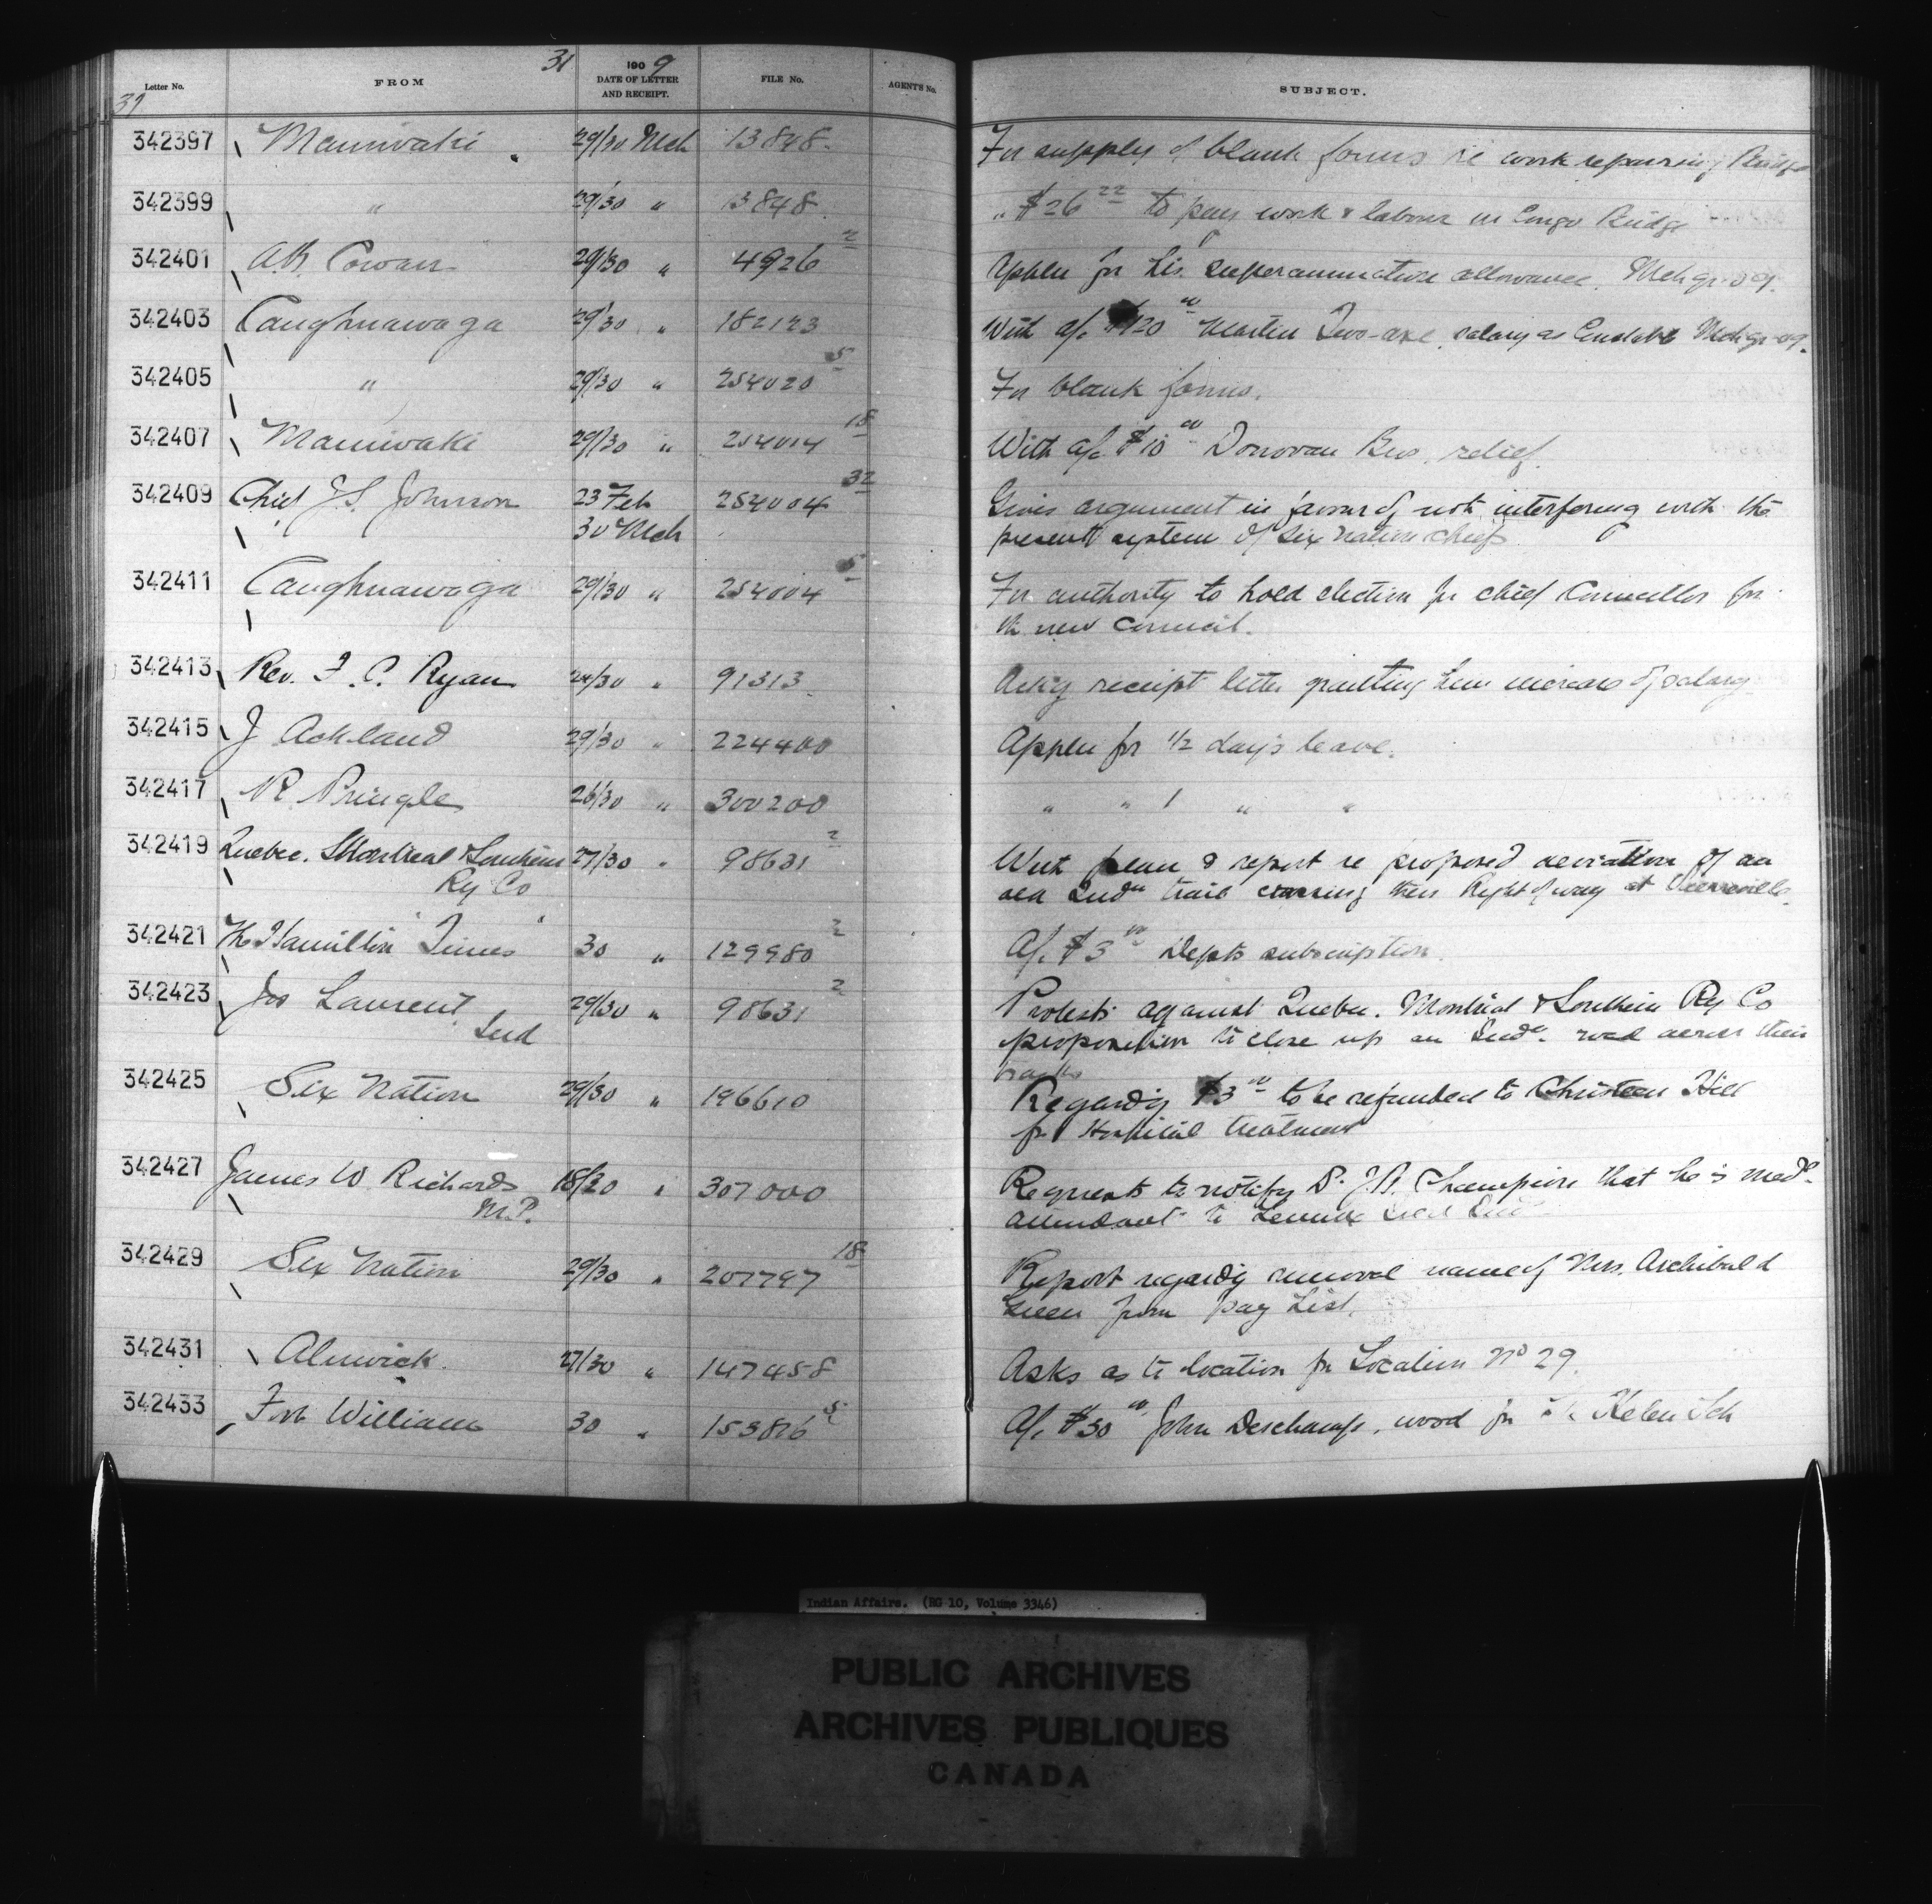 31
190 9
Letter No. FROM DATE OF LETTER AND RECEIPT. FILE No. AGENT'S No. SUBJECT.
31
342397 Maniwaki 29/30 Mch 13848 For supply of blank forms re work repairing Bridge
342399 " 29/30 " 13848 " $26 22 to pay work & labour in Congo Bridge
342401 A.N. Cowan 29/30 " 4926 2 Appln for his superannuation allowance. Mch qr 09.
342403 Caughnawaga 29/30 " 182123 With a/c $120 00 Martin Two-axe, salary as Constable Mch qr 09.
342405 " 29/30 " 254020 5 For blank forms.
342407 Maniwaki 29/30 " 254014 18 With a/c $10 00 Donovan Bros, relief.
342409 Chief J.S. Johnson 23 Feb 254004 32 Gives argument in favour of not interfering with the
30 Mch present system of Six Nation Chiefs
342411 Caughnawaga 29/30 " 254004 5 For authority to hold election for chief Councillor for
the new Council.
342413 Rev. F.C. Ryan 24/30 " 91313 Ackg receipt letter granting him increase of salary
342415 J Ackland 29/30 " 224400 Appln for 1/2 day's leave.
342417 R. Pringle 26/30 " 300200 " " 1 " "
342419 Quebec. Montreal & Southern 27/30 " 98631 2 With plan & report re proposed deviation of an
Ry Co old Indn trail crossing their Right of way at Pierreville.
342421 The Hamilton "Times" 30 " 129980 2 A/c $3 00 Depts subscription.
342423 Jos Laurent 29/30 " 98631 2 Protests against Quebec. Montreal & Southern Ry Co
Ind proposition to close up an Indn. road across their
tracks
342425 Six Nation 29/30 " 196610 Regardg $3 00 to be refunded to Christeen Hill
for Hospital treatment
342427 James W Richards 18/30 " 307000 Requests to notify Dr. J.A. Champion that he is medl
M.P. attendant to Lennox Isld Inds
342429 Six Nation 29/30 " 207797 18 Report regardg removal name of Mrs. Archibald
Green from Pay List.
342431 Alnwick 27/30 " 147458 Asks as to location for Location No 29.
342433 Fort William 30 " 153816 5 A/c $30 00 John Deschamps, wood for Sch
Indian Affairs. (RG 10, Volume 3346)
PUBLIC ARCHIVES
ARCHIVES PUBLIQUES
CANADA